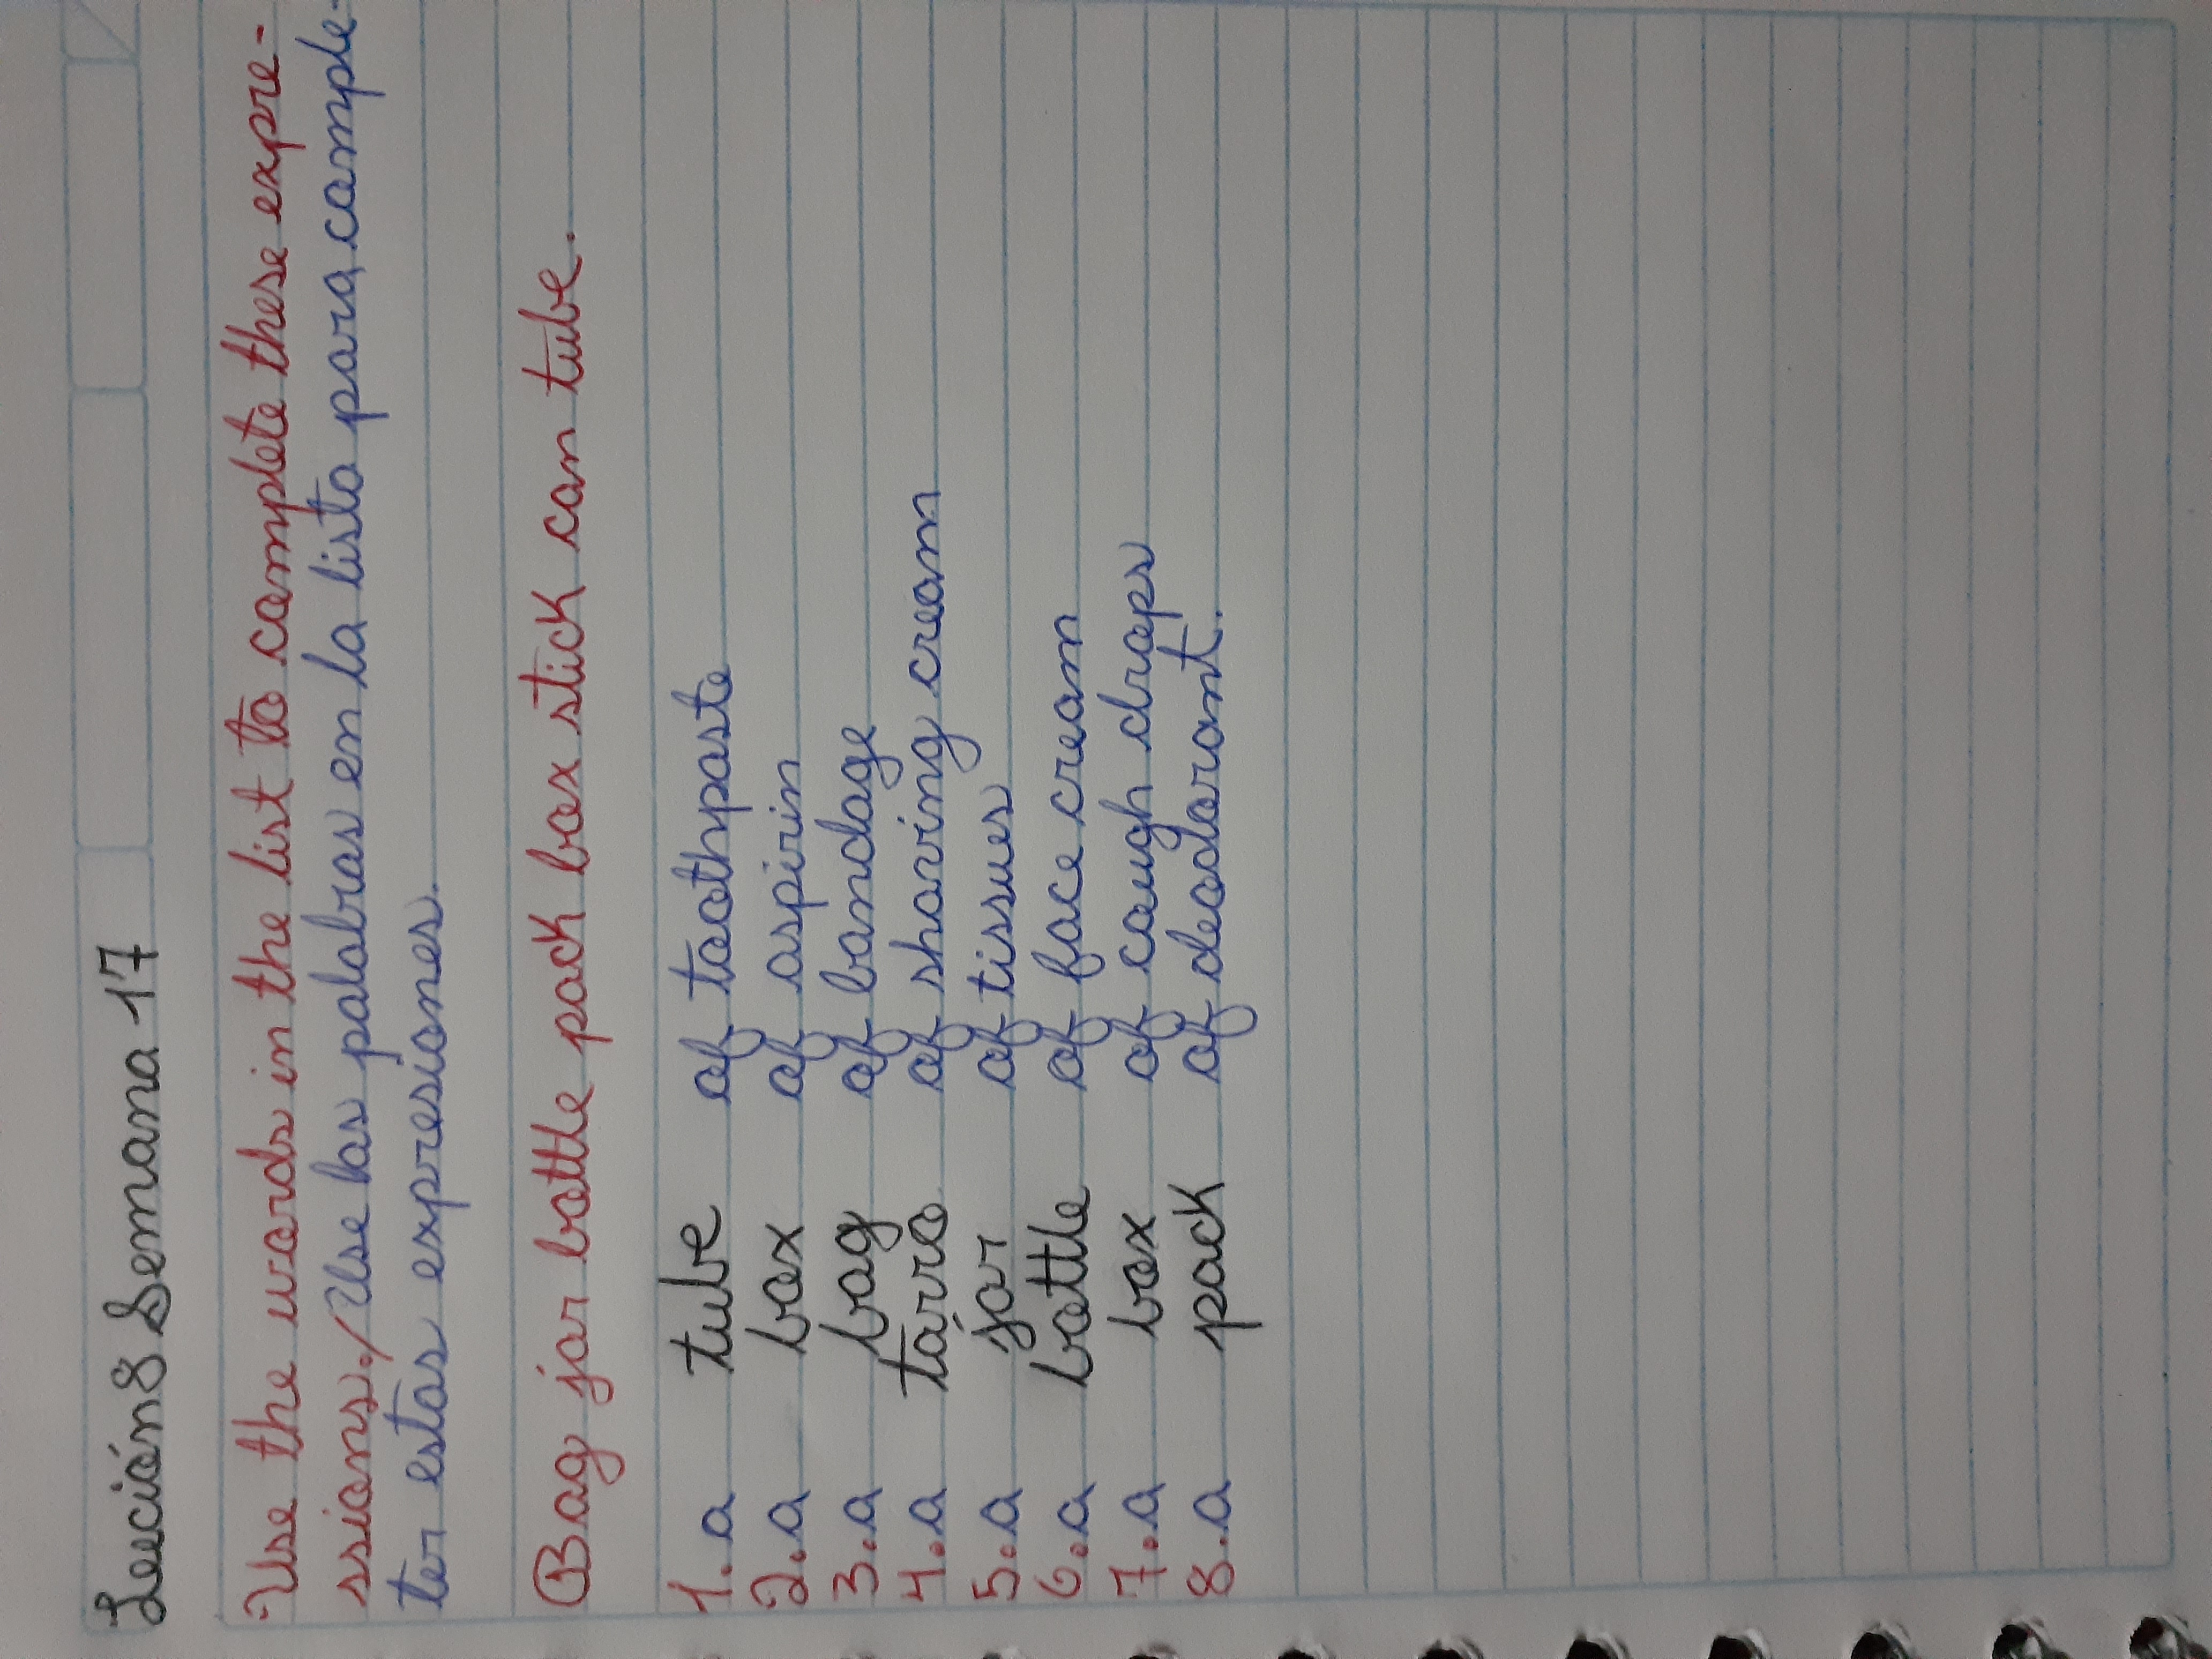 Lección 8 Semana 17
Use the words in the list to complete these expre-
ssions./Use las palabras en la lista para comple-
ter estas expresiones.
Bag jar bottle pack box stick can tube.
1. a tube of toothpaste
2. a box of aspirin
3. a bag of bandage
4. a tárro of shaving cream
5. a jar of tissues
6. a bottle of face cream
7. a box of cough drops
8. a pack of deodorant.